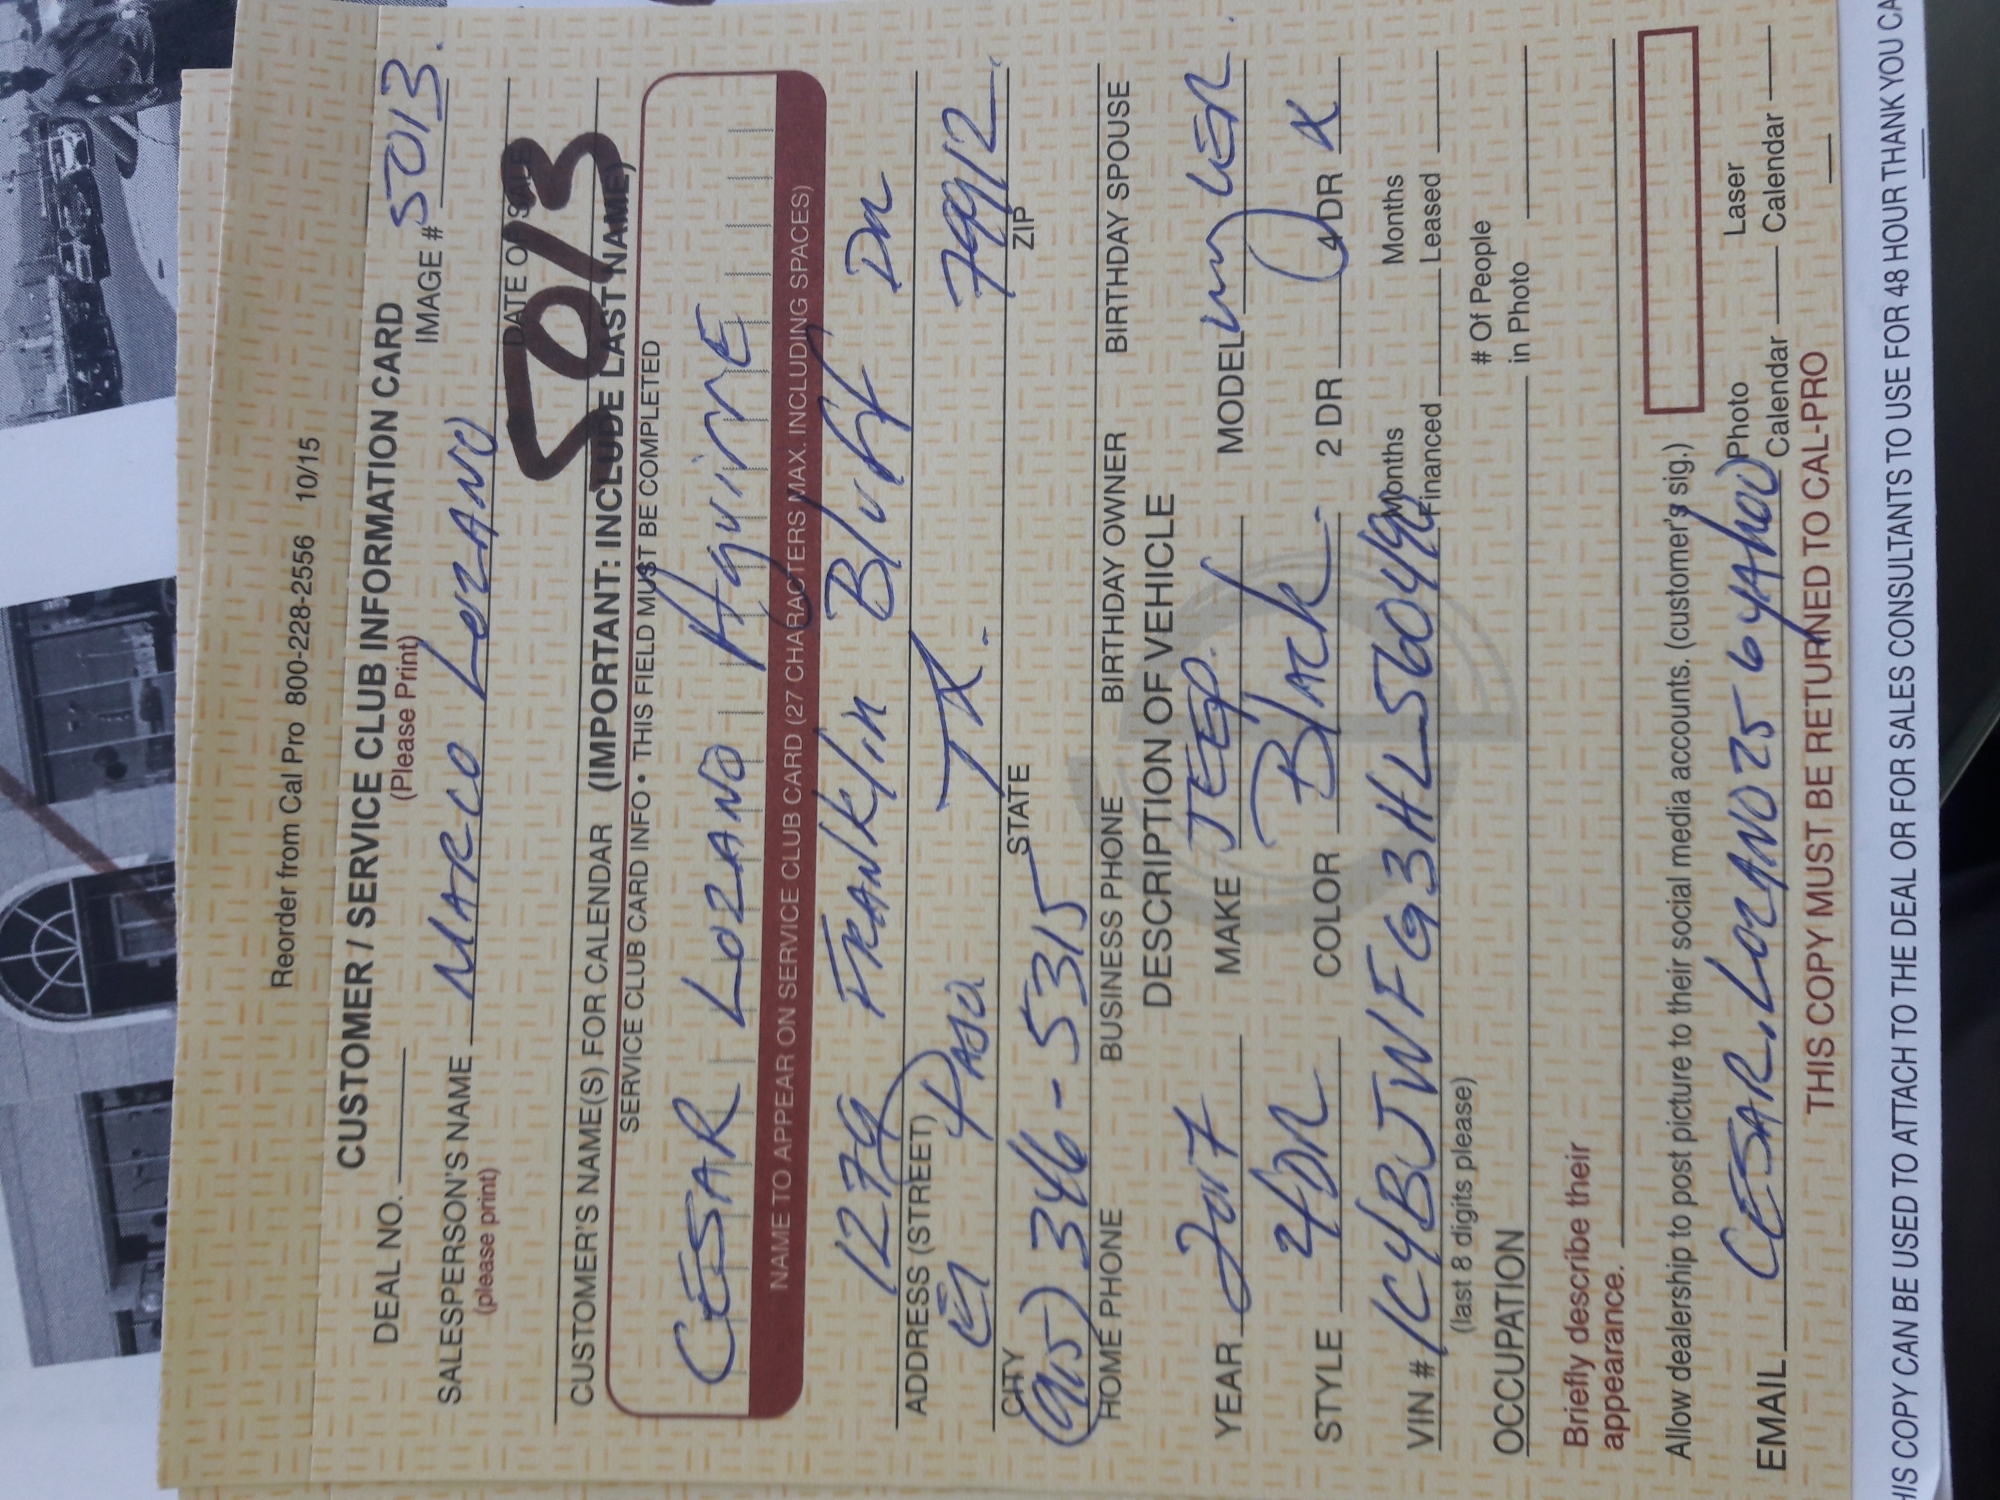 Reorder from Cal Pro 800-228-2556 10/15
CUSTOMER / SERVICE CLUB INFORMATION CARD
DEAL NO. (Please Print) IMAGE # 5013.
SALESPERSON'S NAME MARCO LOZANO
(please print) DATE OF
5013
CUSTOMER'S NAME(S) FOR CALENDAR (IMPORTANT: INCLUDE LAST NAME)
SERVICE CLUB CARD INFO • THIS FIELD MUST BE COMPLETED
CESAR LOZANO Aguirre
NAME TO APPEAR ON SERVICE CLUB CARD (27 CHARACTERS MAX. INCLUDING SPACES)
1279 FRANKlin Bluff DR
ADDRESS (STREET)
El PASO TX. 79912
CITY STATE ZIP
(915) 346-5315
HOME PHONE BUSINESS PHONE BIRTHDAY OWNER BIRTHDAY SPOUSE
DESCRIPTION OF VEHICLE
YEAR 2017 MAKE JEEP. MODEL
STYLE 4DR COLOR BlACK 2 DR 4 DR X
VIN # 1C4BJWFG3HL560490 Months Financed Months Leased
(last 8 digits please)
OCCUPATION # Of People in Photo
Briefly describe their
appearance.
Allow dealership to post picture to their social media accounts. (customer's sig.)
EMAIL CESAR.LOZANO256YAhoo Photo Calendar Laser Calendar
THIS COPY MUST BE RETURNED TO CAL-PRO
HIS COPY CAN BE USED TO ATTACH TO THE DEAL OR FOR SALES CONSULTANTS TO USE FOR 48 HOUR THANK YOU CA